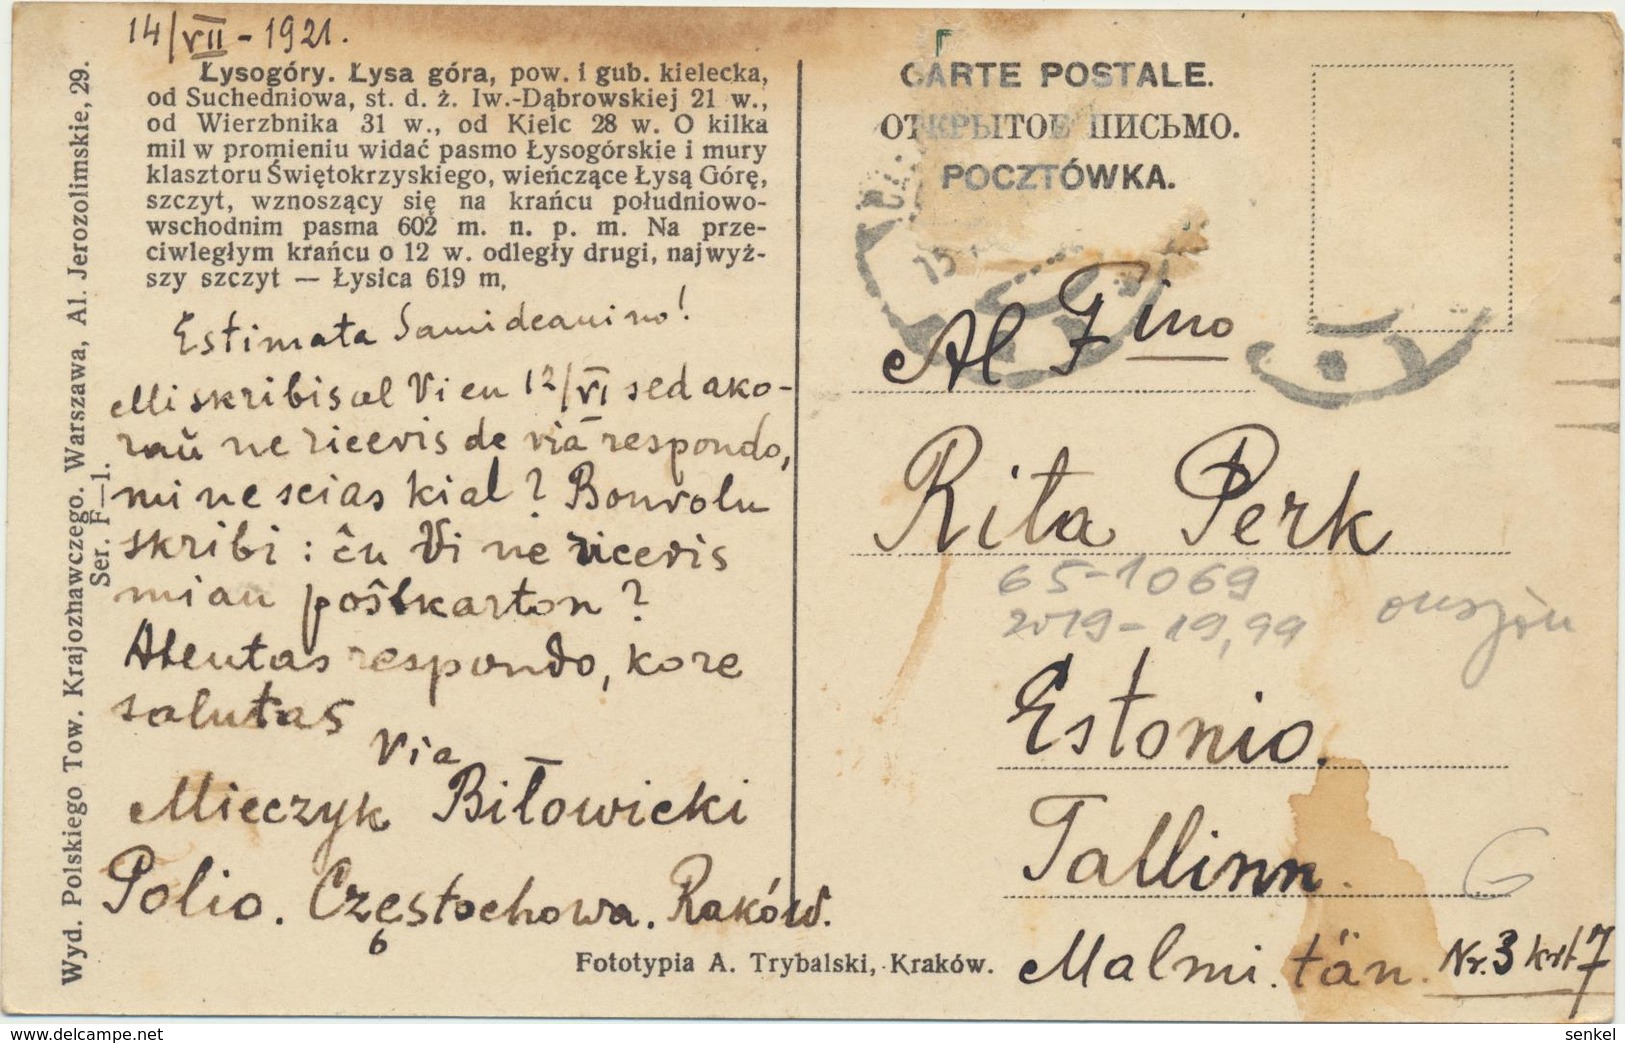 14/VII - 1921.
Łysogóry. Łysa góra, pow. i gub. kielecka,
od Suchedniowa, st. d. ż. Iw.-Dąbrowskiej 21 w.,
od Wierzbnika 31 w., od Kielc 28 w. O kilka
mil w promieniu widać pasmo Łysogórskie i mury
klasztoru Świętokrzyskiego, wieńczące Łysą Górę,
szczyt, wznoszący się na krańcu południowo-
wschodnim pasma 602 m. n. p. m. Na prze-
ciwległym krańcu o 12 w. odległy drugi, najwyż-
szy szczyt — Łysica 619 m.
Estimata Samideanino!
Mi skribis al Vi en 12/VI sed ako-
raŭ ne ricevis de via respondo,
mi ne scias kial? Bonvolu
skribi: ĉu Vi ne ricevis
mian poŝtkarton?
Atentas respondo, kore
salutas
Via
Mieczyk Biłowicki
Polio. Częstochowa. Raków.
6
Wyd. Polskiego Tow. Krajoznawczego. Warszawa, Al. Jerozolimskie, 29.
Ser. F—1.
Fototypia A. Trybalski, Kraków.
CARTE POSTALE.
ОТКРЫТОЕ ПИСЬМО.
POCZTÓWKA.
15
Al Fino
Rita Perk
65-1069
2019-19,99
Estonio.
Tallinn.
Malmi. tän. Nr. 3 krt 7
senkel